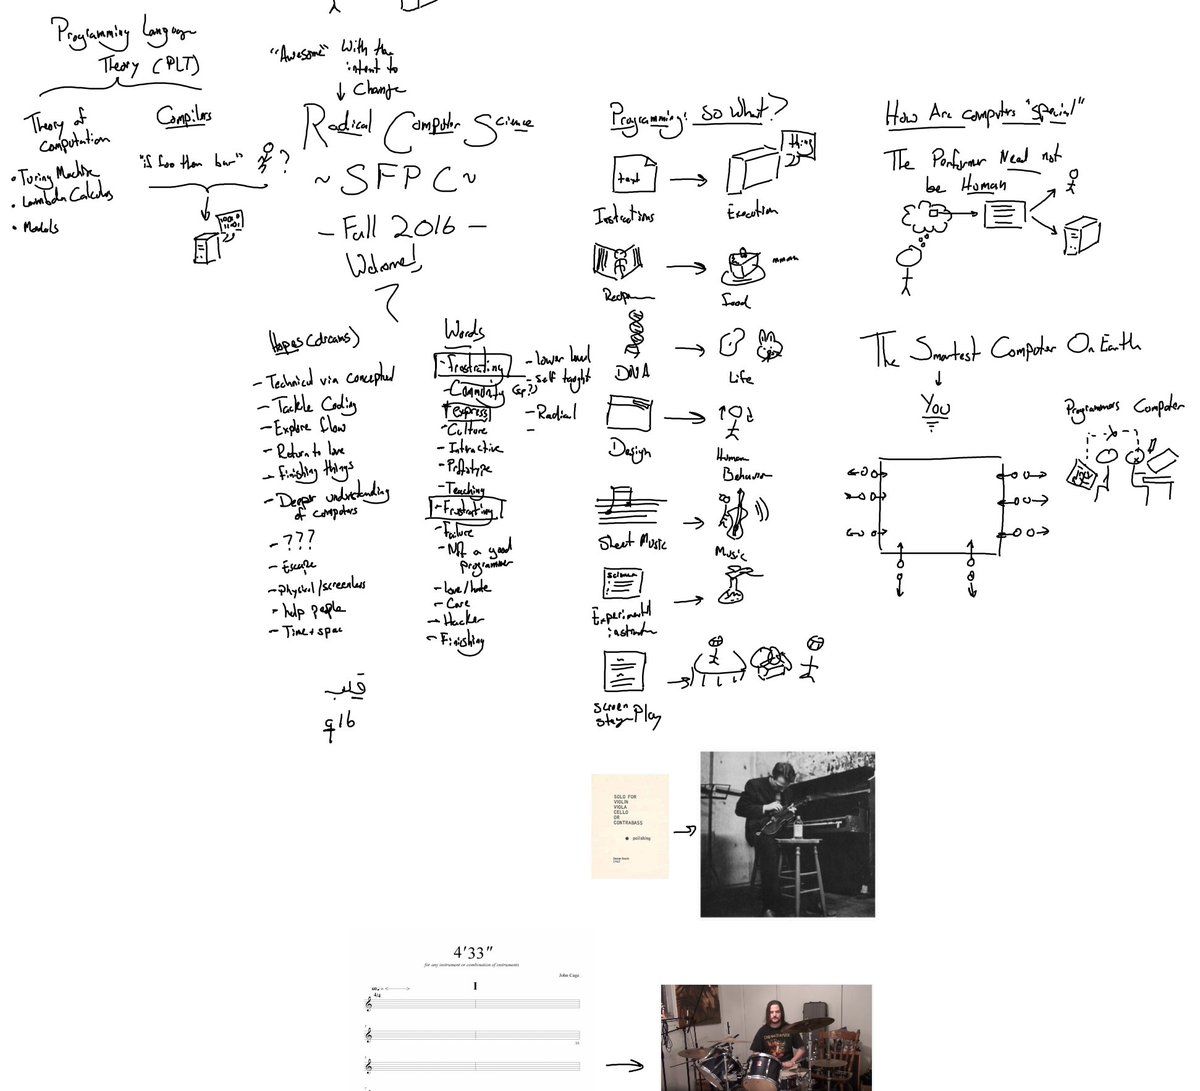 Programming Language
Theory (PLT)
Theory of
Computation
• Turing Machine
• Lambda Calculus
• Models
Compilers
"if foo then bar"
?
"Awesome" With the
intent to
Change
Radical Computer Science
~ SFPC ~
- Fall 2016 -
Welcome!
Hopes (dreams)
- Technical via conceptual
- Tackle Coding
- Explore flow
- Return to love
- Finishing things
- Deeper understanding
of computers
- ???
- Escape
- Physical/screenless
- help people
- Time + space
Words
- frustrating
- Community (sp?)
express
- Culture
- Interactive
- Prototype
- Teaching
- Frustrating
- Failure
- Not a good
programmer
- love/hate
- Care
- Hacker
- Finishing
- lower level
- self taught
- Radial
-
قلب
qlb
Programming: So What?
text
thing
Instructions
Execution
Recipe
Food
mmm
DNA
Life
Design
Human
Behavior
Sheet Music
Music
Science
Experimental
Screen
Stage Play
How Are Computers "Special"
The Performer Need not
be Human
The Smartest Computer On Earth
You
Programmers Computer
SOLO FOR
VIOLIN
VIOLA
CELLO
OR
CONTRABASS
• polishing
4'33"
for any instrument or combination of instruments
John Cage
I